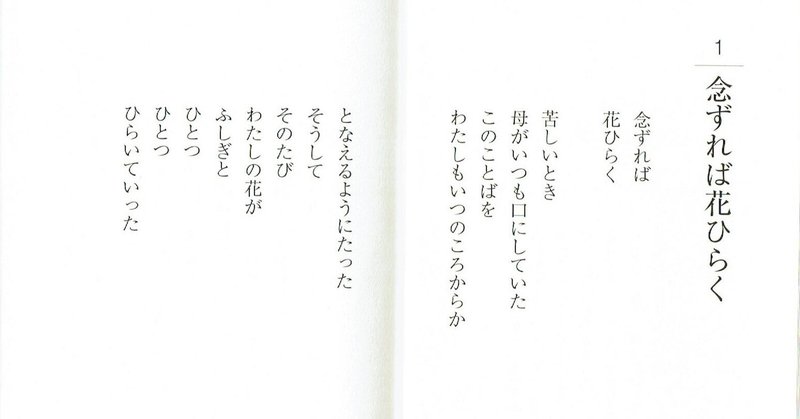 1
念ずれば花ひらく
念ずれば
花ひらく
苦しいとき
母がいつも口にしていた
このことばを
わたしもいつのころからか
となえるようにたった
そうして
そのたび
わたしの花が
ふしぎと
ひとつ
ひとつ
ひらいていった